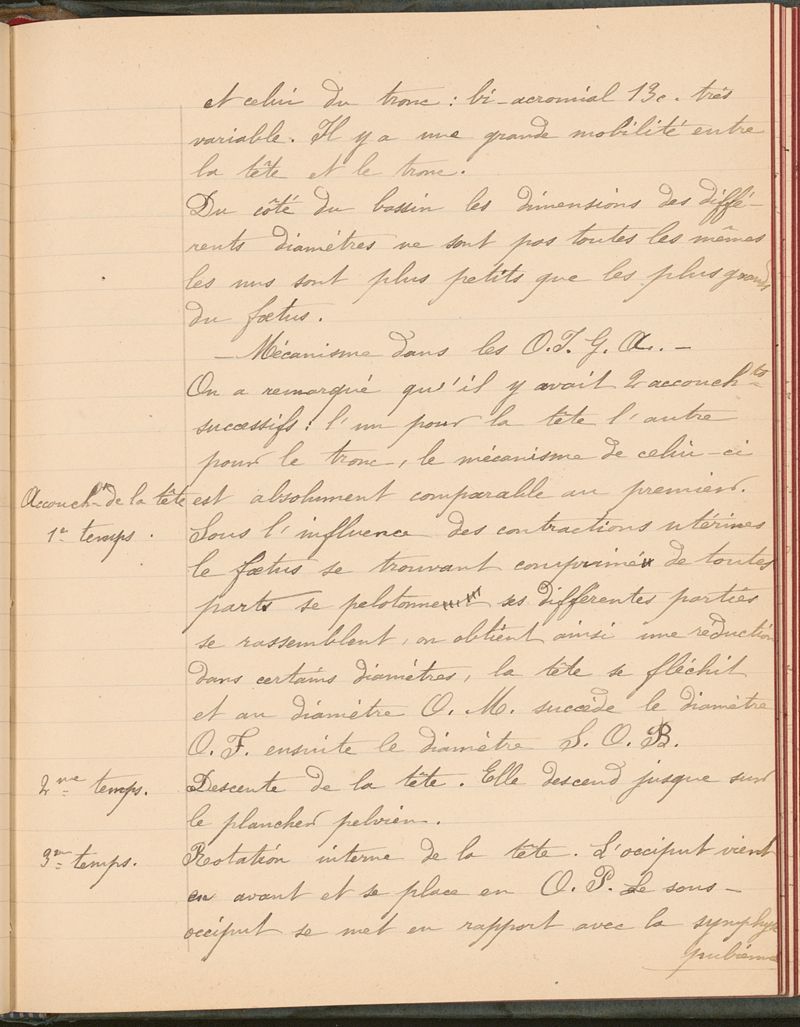 et celui du tronc : bi-acromial 13c. très
variable. Il y a une grande mobilité entre
la tête et le tronc.
Du côté du bassin les dimensions des diffé-
rents diamètres ne sont pas toutes les mêmes
les uns sont plus petits que les plus grands
du fœtus.
— Mécanisme dans les O.I.G.A. —
On a remarqué qu'il y avait 2 accouch-ts
successifs : l'un pour la tête l'autre
pour le tronc, le mécanisme de celui-ci
Accouch-nt de la tête est absolument comparable au premier.
1er temps. Sous l'influence des contractions utérines
le fœtus se trouvant comprimé de toutes
parts se pelotonne ses différentes parties
se rassemblent, on obtient ainsi une réduction
dans certains diamètres, la tête se fléchit
et au diamètre O. M. succède le diamètre
O. F. ensuite le diamètre S. O. B.
2me temps. Descente de la tête. Elle descend jusque sur
le plancher pelvien.
3me temps. Rotation interne de la tête. L'occiput vient
en avant et se place en O. P. Le sous-
occiput se met en rapport avec la symphyse
pubienne